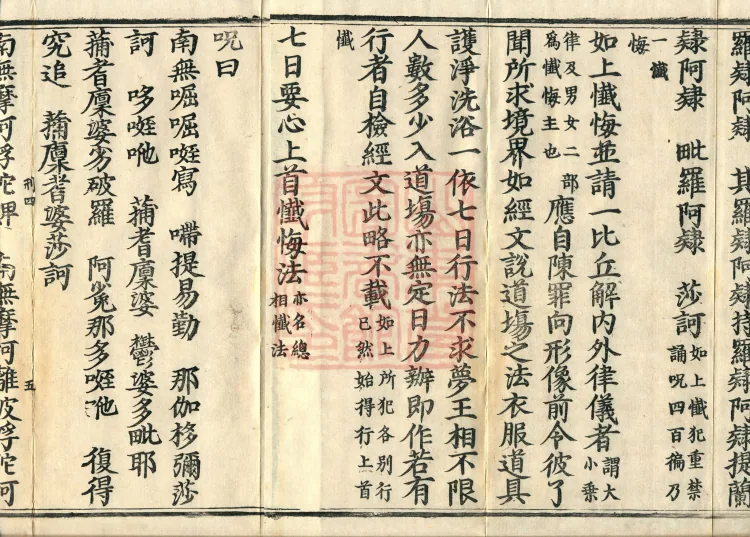 羅隸阿隸 其羅隸阿隸持羅隸阿隸提蘭
隸阿隸 毗羅阿隸 莎訶 如上懺犯重禁
誦呪四百徧乃
一懺
悔
如上懺悔並請一比丘解內外律儀者 謂大
小乗
律及男女二部
為懺悔主也
應自陳罪向形像前令彼了
聞所求境界如經文說道場之法衣服道具
護淨洗浴一依七日行法不求夢王相不限
人數多少入道場亦無定日力辦即作若有
行者自檢經文此略不載 如上所犯各別行
已然始得行上首
懺
七日要心上首懺悔法 亦名總
相懺法
呪曰
南無堀堀啀寫 嚌提易勤 那伽移彌莎
訶 哆啀咃 蒱耆廩婆 鬱婆多毗耶
蒱者廩婆劣破羅 阿㝹那多啀咃 復得
究追 蒱廩耆婆莎訶
刑四 五
南無摩訶浮陀卑 南無摩訶離波浮陀訶